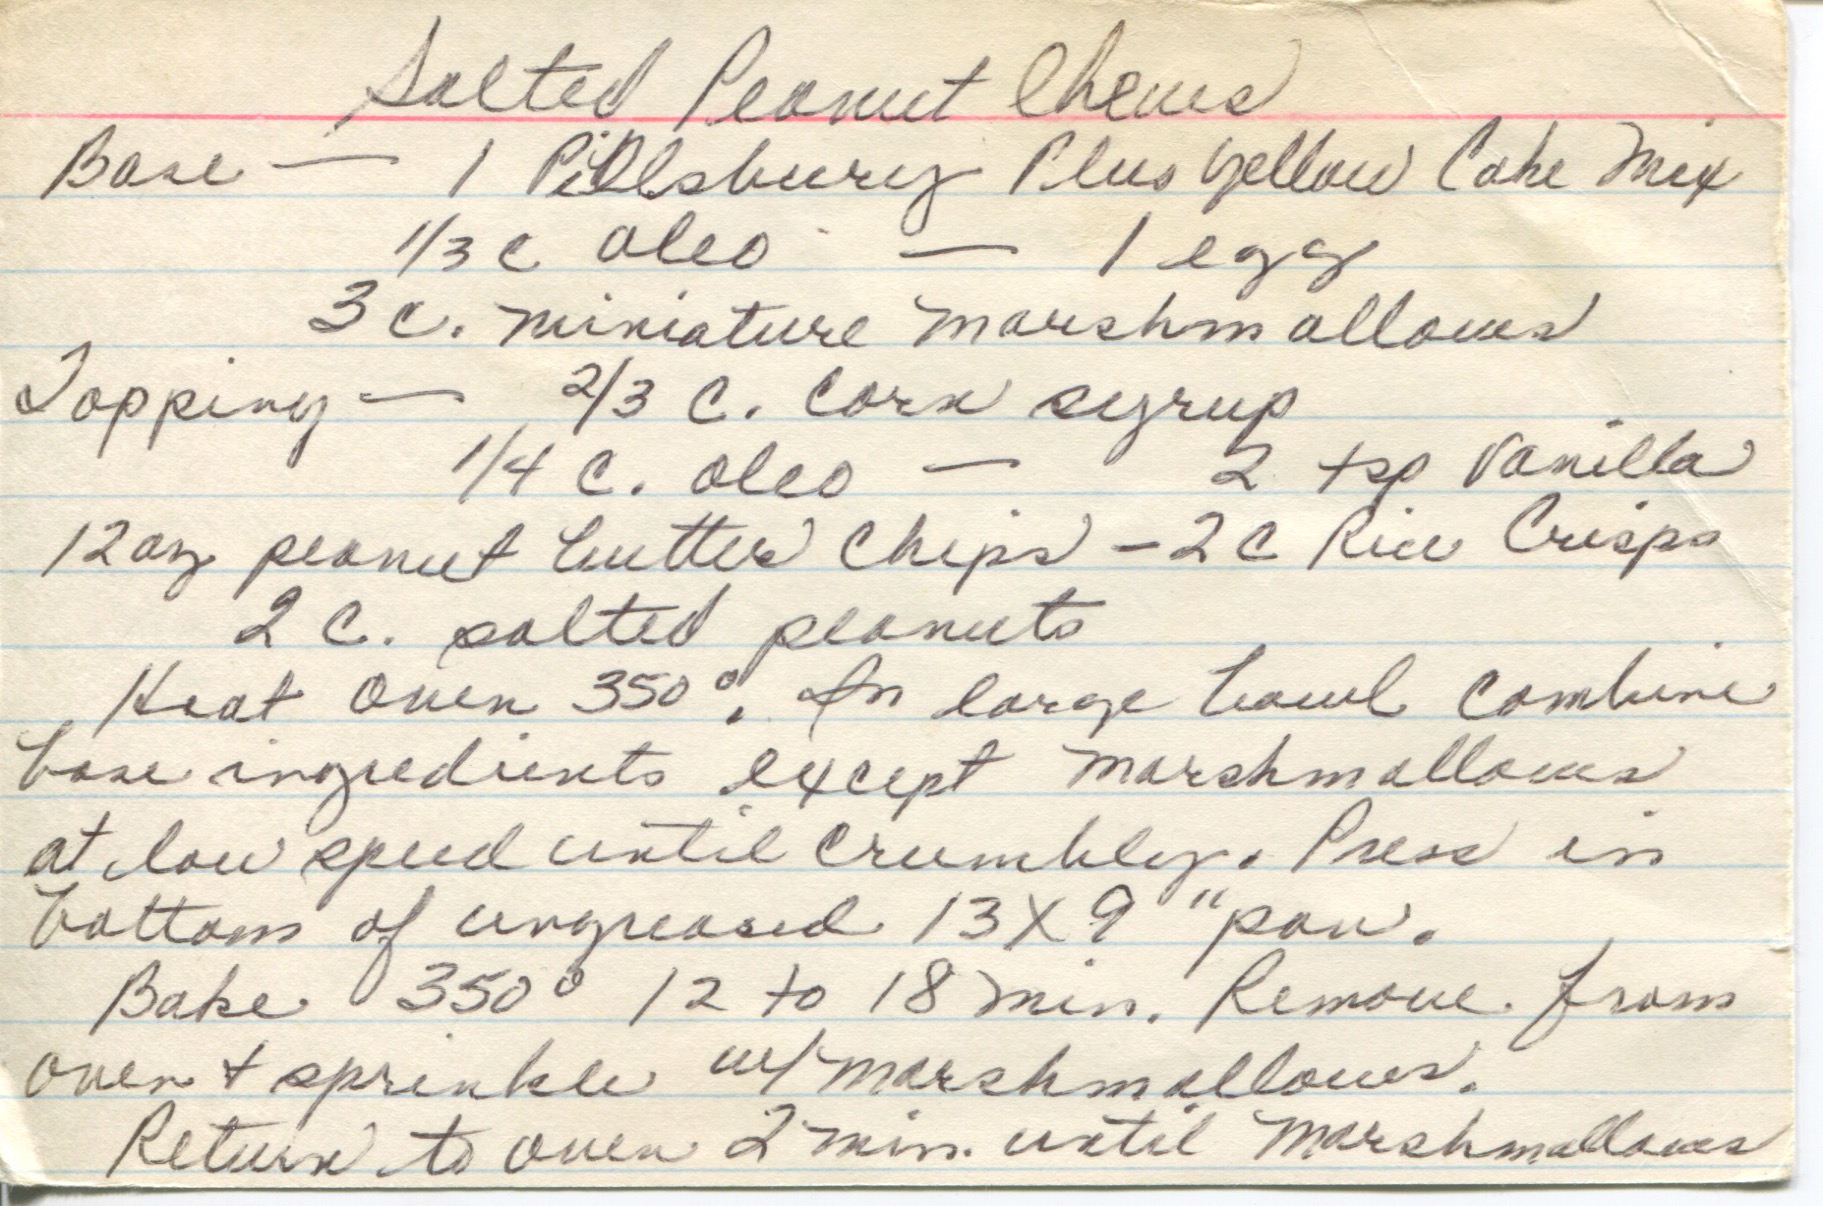 Salted Peanut Chews
Base — 1 Pillsbury Plus Yellow Cake Mix
1/3 c oleo — 1 egg
3 c. miniature marshmallows
Topping — 2/3 c. corn syrup
1/4 c. oleo — 2 tsp vanilla
12 oz peanut butter chips - 2 c Rice Crisps
2 c. salted peanuts
Heat oven 350°. In large bowl combine
base ingredients except marshmallows
at low speed until crumbly. Press in
bottom of ungreased 13 X 9" pan.
Bake 350° 12 to 18 min. Remove from
oven + sprinkle w/ marshmallows.
Return to oven 2 min. until marshmallows